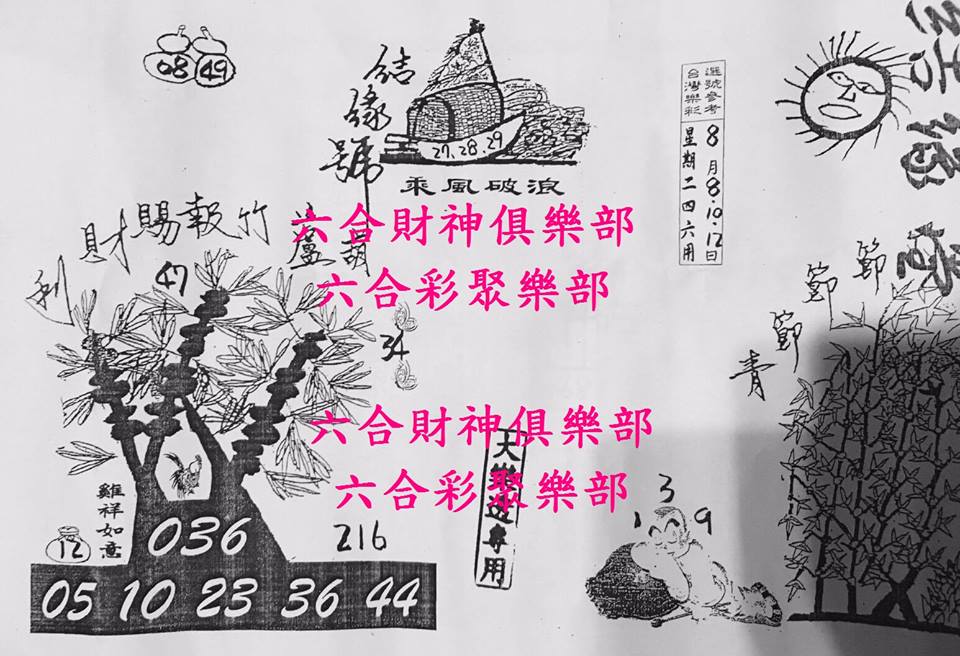 08 49
結緣號
27.28.29
乘風破浪
選號參考
台灣樂彩
8月8.10.12日
星期二四六用
六合財神俱樂部
六合彩聚樂部
竹報賜財利
葫蘆
47
34
節節節青
六合財神俱樂部
六合彩聚樂部
雞祥如意
12
036
216
1 3 9
05 10 23 36 44